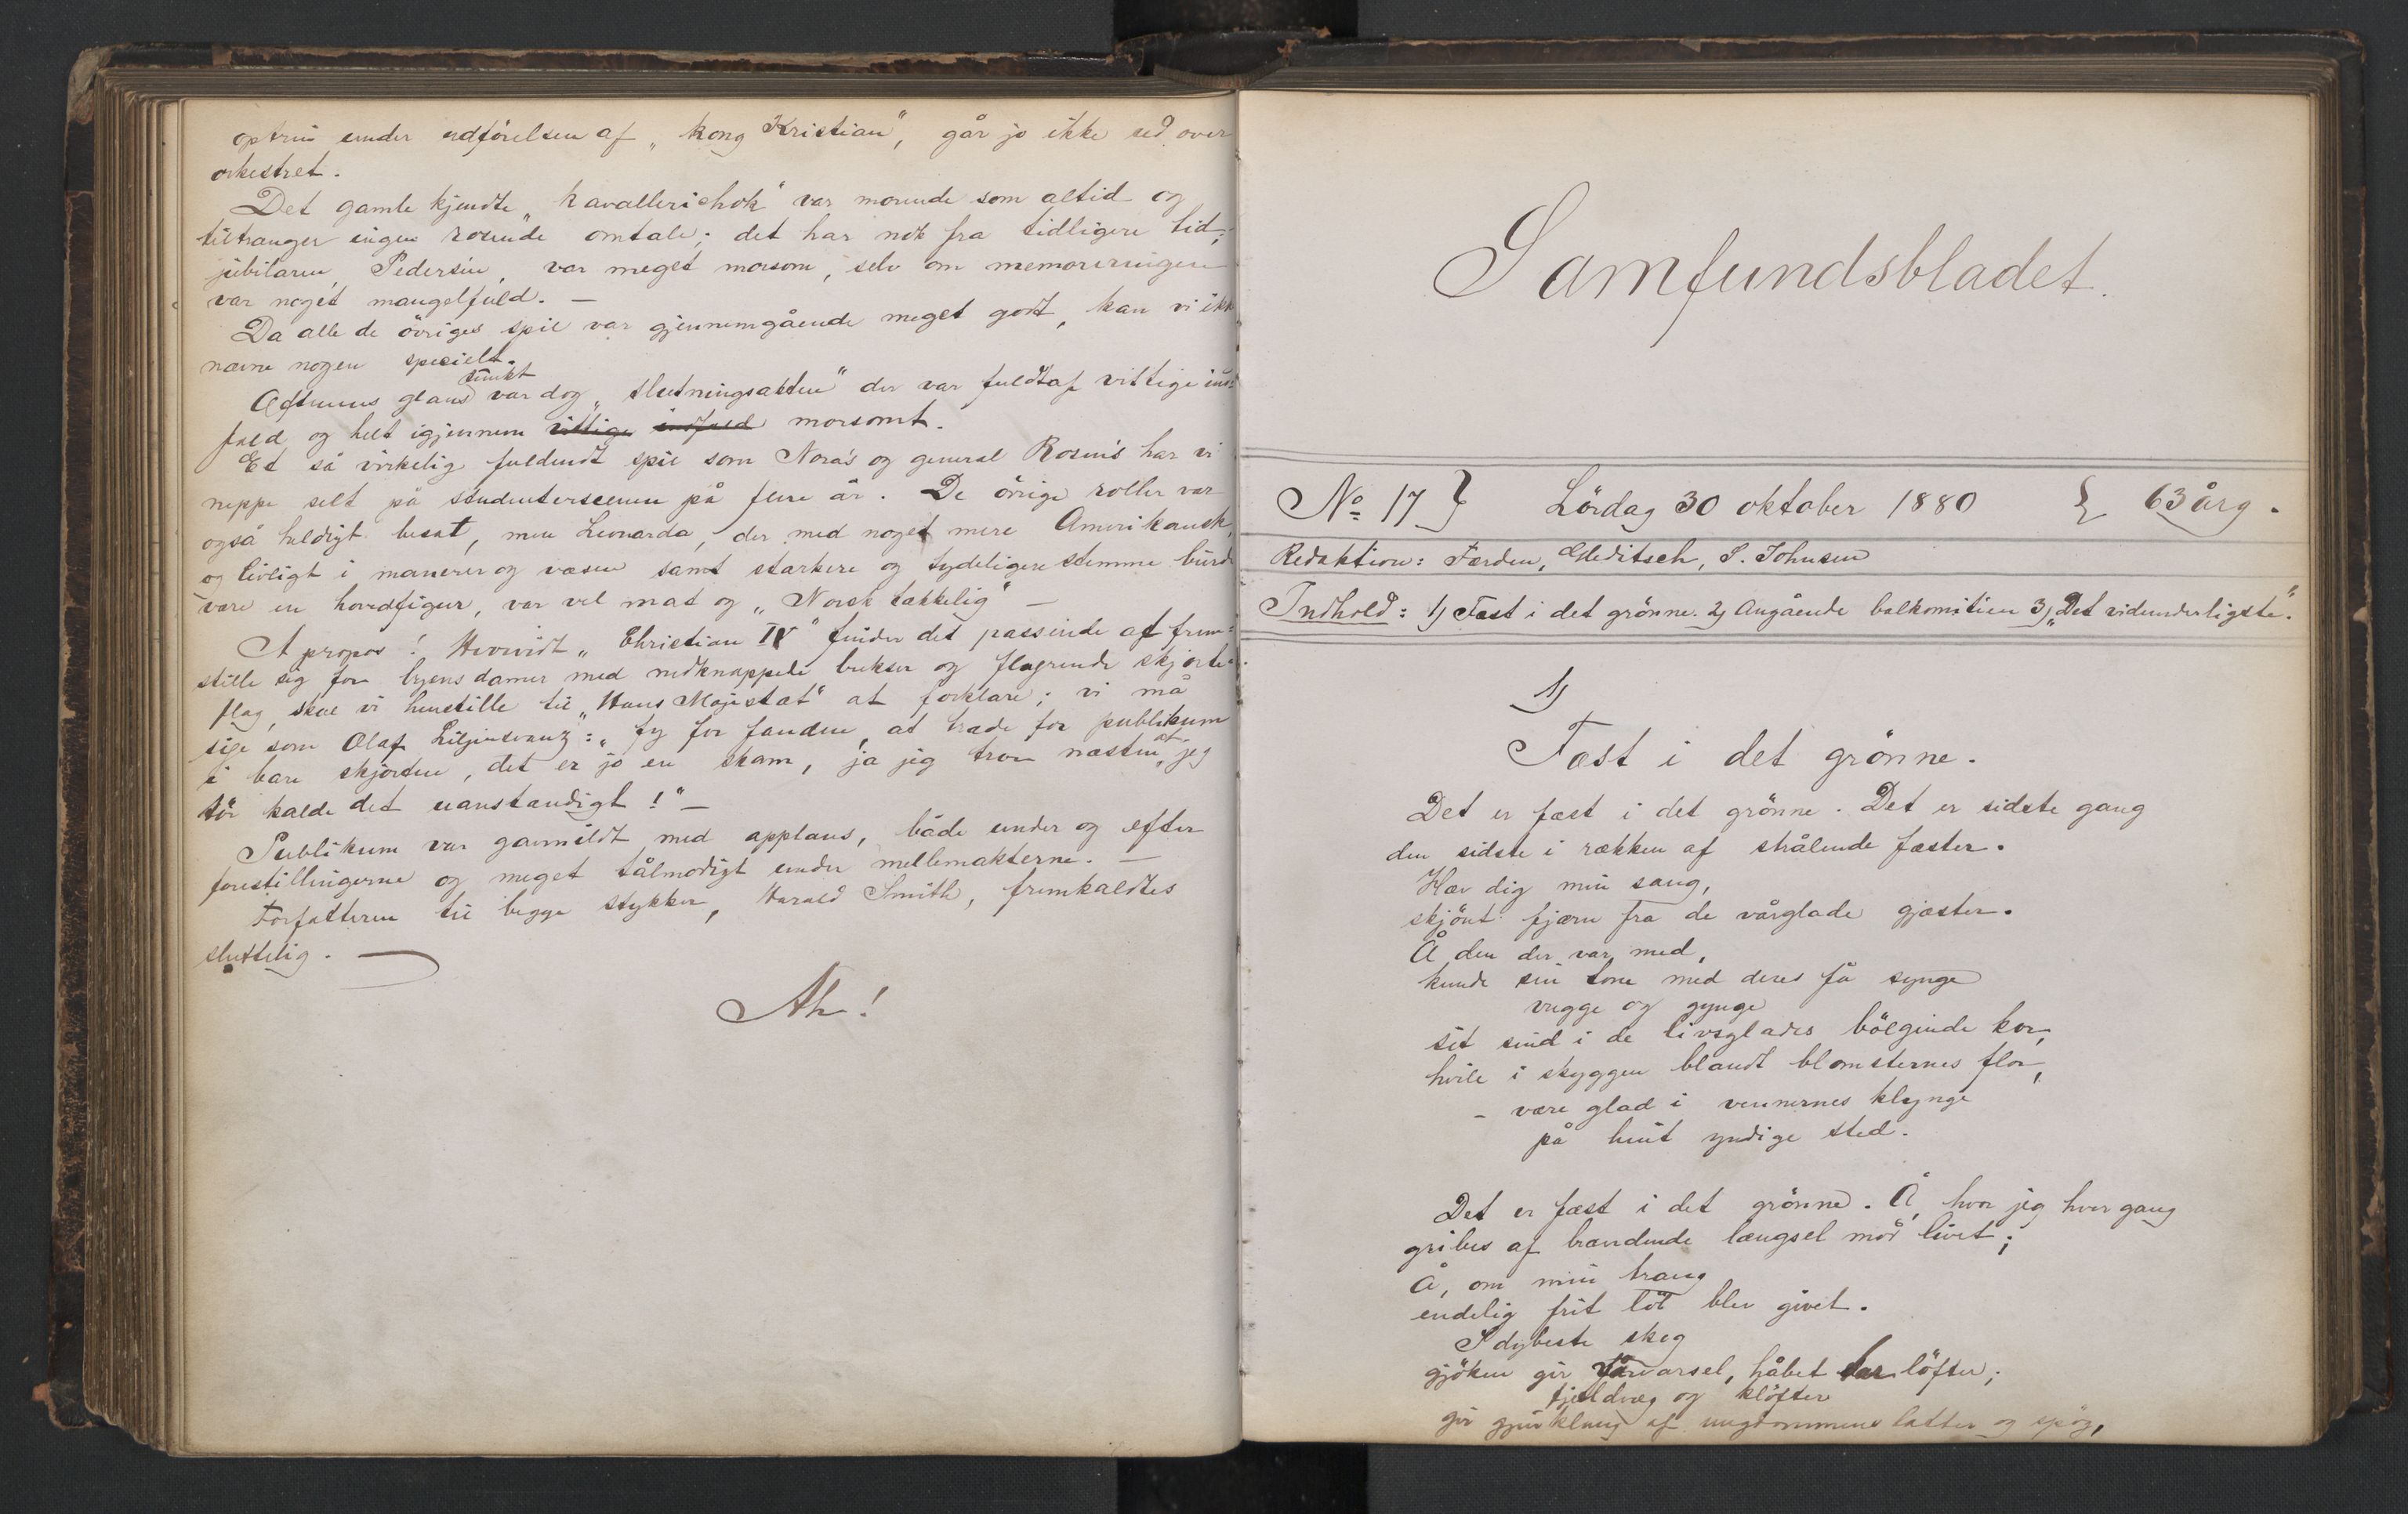 optrin under udförelsen af „kong Kristian", går jo ikke ud over
orkestret.
Det gamle kjendte „kavallerichok" var morende som altid og
tiltrænger ingen rosende omtale; det har nok fra tidligere tid;
jubilaren, Pedersen, var meget morsom, selv om memoreringen
var noget mangelfuld. —
Da alle de övriges spil var gjennemgående meget godt, kan vi ikke
nævne nogen specielt.
Aftenens glans punkt var dog „slutningsakten" der var fuldt af vittige ind=
fald og helt igjennem vittige indfald morsomt.
Et så virkelig fuldendt spil som Nora's og general Rosen's har vi
neppe selt på studenterscenen på flere år. De övrige roller var
også heldigt besat, men Leonarda, der med noget mere Amerikansk
og livligt i manerer og væsen samt stærkere og tydeligere stemme burde
være en hovedfigur, var vel mat og „Norsk takkelig" —
A propos! Hvorvidt „Christian IV" finder det passende at frem=
stille sig for byens damer med nedknappede bukser og flagrende skjorte=
flag, skal vi henstille til „Hans Majestæt" at forklare; vi må
sige som Olaf Liljenkranz: „Fy for fanden, at træde for publikum
i bare skjorten, det er jo en skam, ja jeg tror næsten, at jeg
tör kalde det uanstændigt!" —
Publikum var gavmildt med applaus, både under og efter
forestillingerne og meget tålmodigt under mellemakterne. —
Forfatteren til begge stykker, Harald Smith, fremkaldtes
sluttelig. —
Ah!
Samfundsbladet.
No 17 } Lördag 30 oktober 1880 { 63 årg.
Redaktion: Færden, Gleditsch, S. Johnsen
Indhold: 1) Fæst i det grönne. 2) Angående balkomitien 3) „Det vidunderligste".
1)
Fæst i det grönne.
Det er fæst i det grönne. Det er sidste gang
den sidste i rækken af strålende fæster.
Hæv dig min sang,
skjönt fjærn fra de vårglade gjæster.
Å den der var med,
kunde sin tone med deres få synge
vugge og gynge
sit sind i de livsglades bölgende kor,
hvile i skyggen blandt blomsternes flor,
- være glad i vennernes klynge
på hint yndige sted.
Det er fæst i det grönne. Å, hvor jeg hver gang
gribes af brændende længsel mod livet;
Å, om min trang
endelig frit löb blev givet.
I dybeste skog
gjöken gir vårvarsel, håbet har löfter,
fjeldvæg og klöfter
gir gjenklang af ungdommens latter og spög,